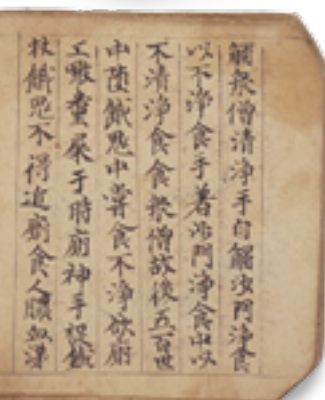 觸衆僧清淨手自觸沙門淨食
以不淨食手著沙門淨食中以
不清淨食食衆僧故後五百世
中堕餓鬼中常食不淨欲廁
上噉糞屎于時廁神手捉鐵
杖餓鬼不得近廁食人膿血涕